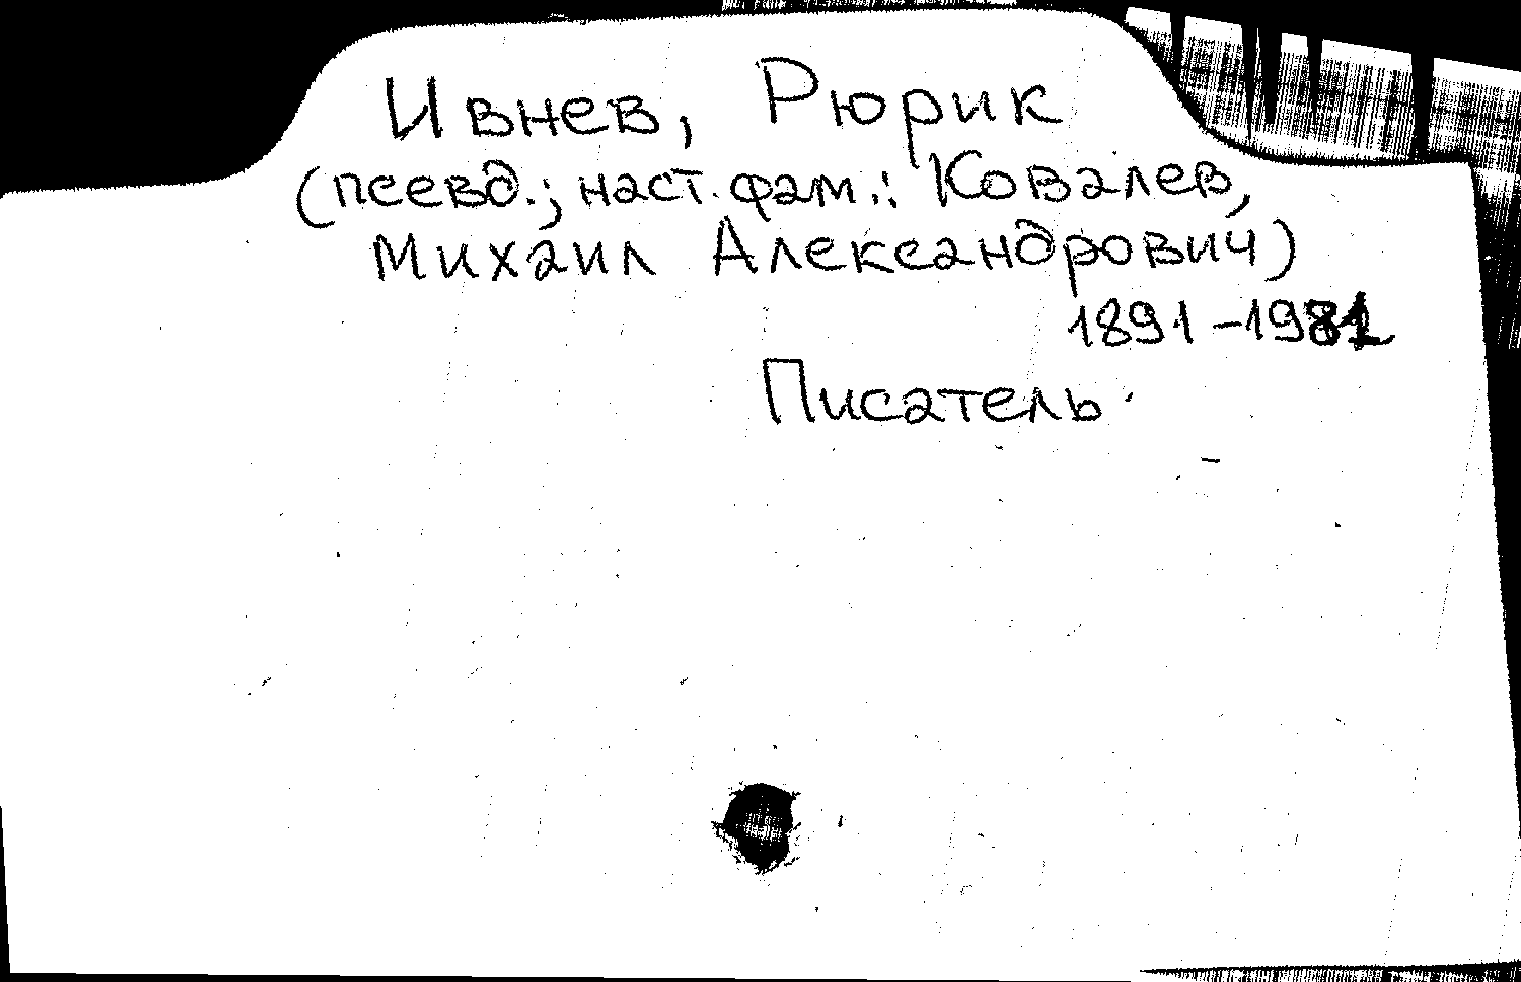 Ивнев, Рюрик
(псевд.; наст. фам.: Ковалев,
Михаил Александрович)
1891-1981
Писатель